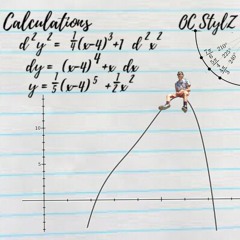 Calculations
OC StylZ
d²y² = 1/4(x-4)³+1 d²x²
dy = (x-4)⁴+x dx
y = 1/5(x-4)⁵ +1/2x²
10
5